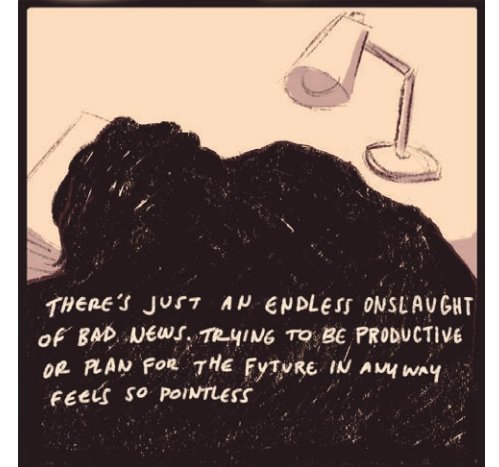 THERE'S JUST AN ENDLESS ONSLAUGHT
OF BAD NEWS. TRYING TO BE PRODUCTIVE
OR PLAN FOR THE FUTURE IN ANY WAY
FEELS SO POINTLESS